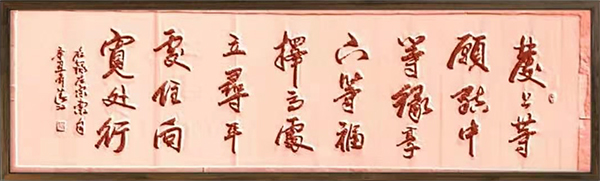 發上等
願結中
等緣享
下等福
擇高處
立尋平
處住向
寬处行
左宗棠句
辛丑